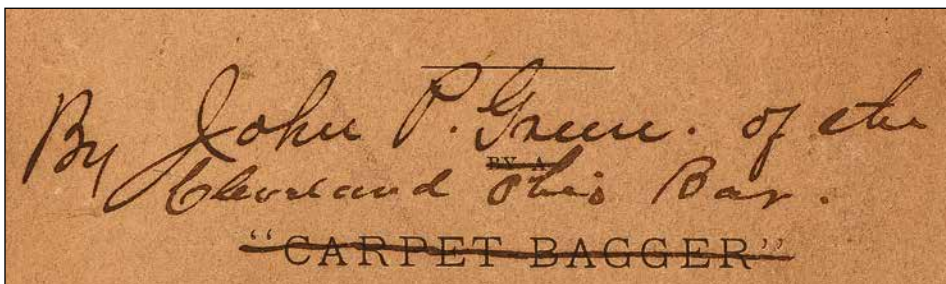 By John P. Greene. of the
BY A
Cleveland Ohio Bar.
“CARPET BAGGER”